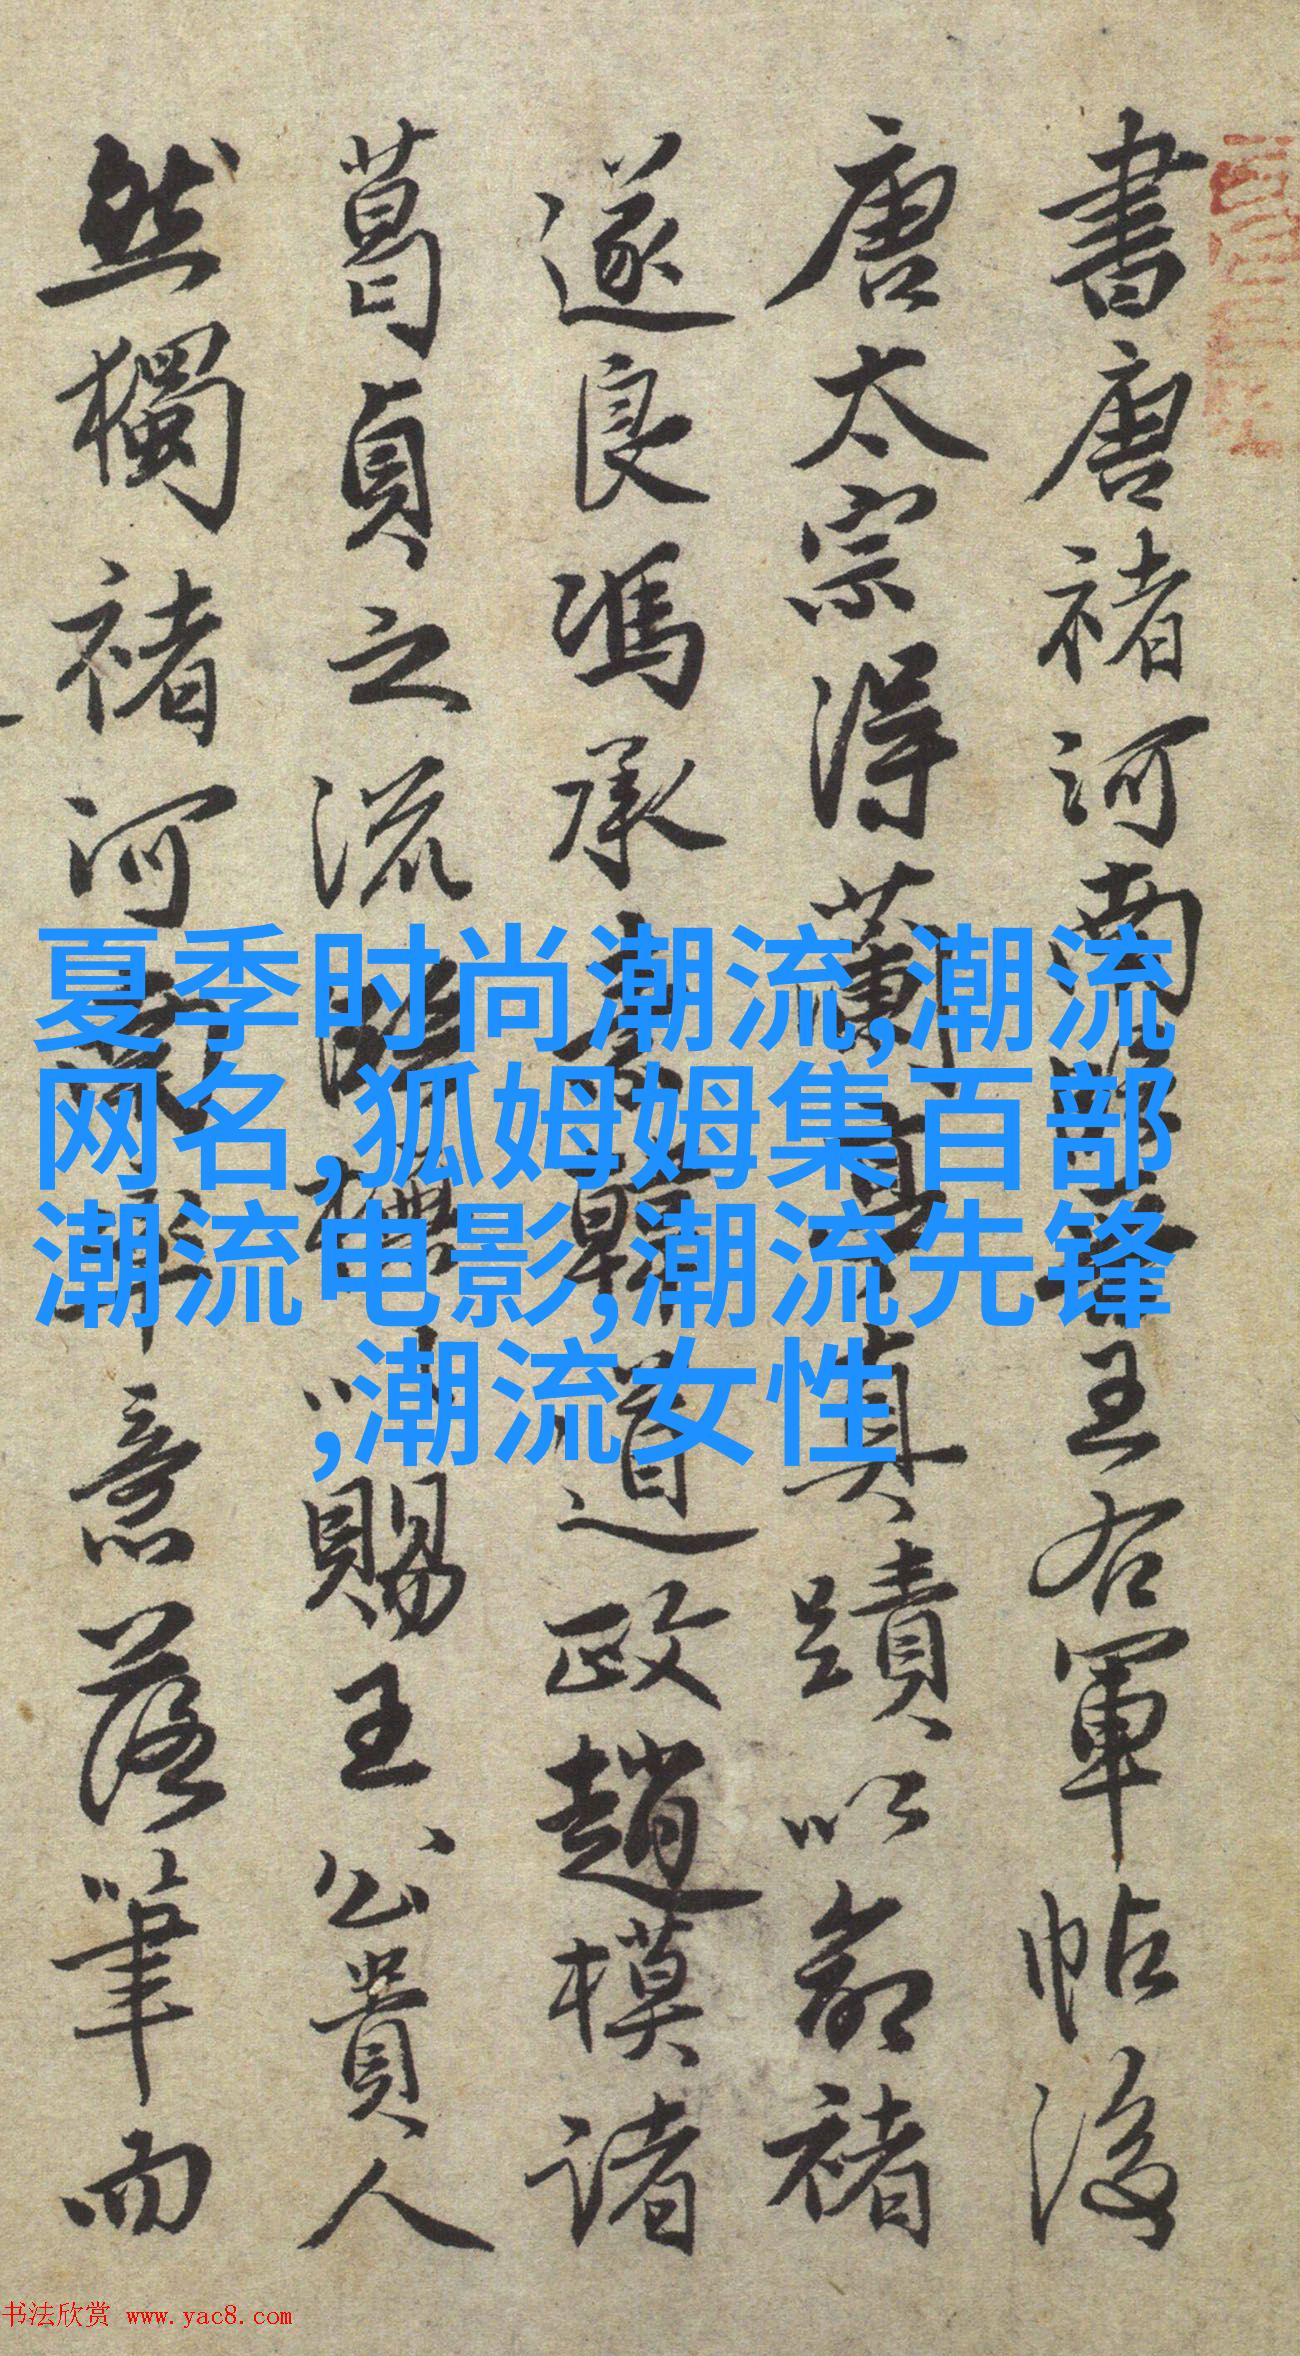 書唐褚河南臨王右軍帖後
唐太宗得蘭亭真蹟以命褚
遂良馮承素韓道政趙模諸
葛貞之流臨搨以賜王公貴人
然獨褚河南率意落筆而
夏季时尚潮流,潮流
网名,狐姆姆集百部
潮流电影,潮流先锋
,潮流女性
书法欣赏 www.yac8.com